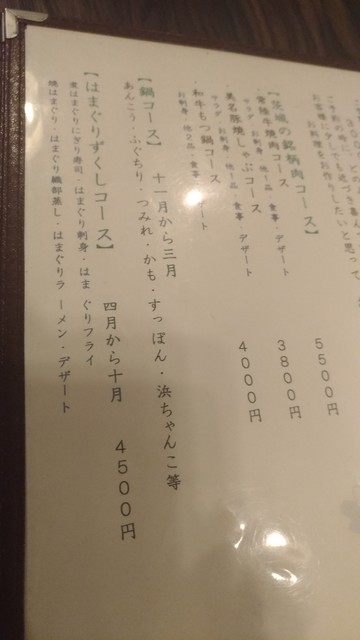 3000円ほどの
ご予約の席に近づきました
お客様に少しでも思って
お料理をお作りしたいと思って
【茨城の銘柄肉コース】
常陸牛焼肉コース 5500円
マッグ・お刺身・他1品・食事・デザート
美名豚焼しゃぶコース 3800円
マッグ・お刺身・他1品・食事・デザート
和牛もつ鍋コース 4000円
お刺身・他2品・食事・デザート
【鍋コース】 十一月から三月
あんこう・ふぐちり・つみれ・かも・すっぽん・浜ちゃんこ等
【はまぐりずくしコース】 四月から十月 4500円
煮はまぐりにぎり寿司・はまぐり刺身・はまぐりフライ
焼はまぐり・はまぐり織部蒸し・はまぐりラーメン・デザート